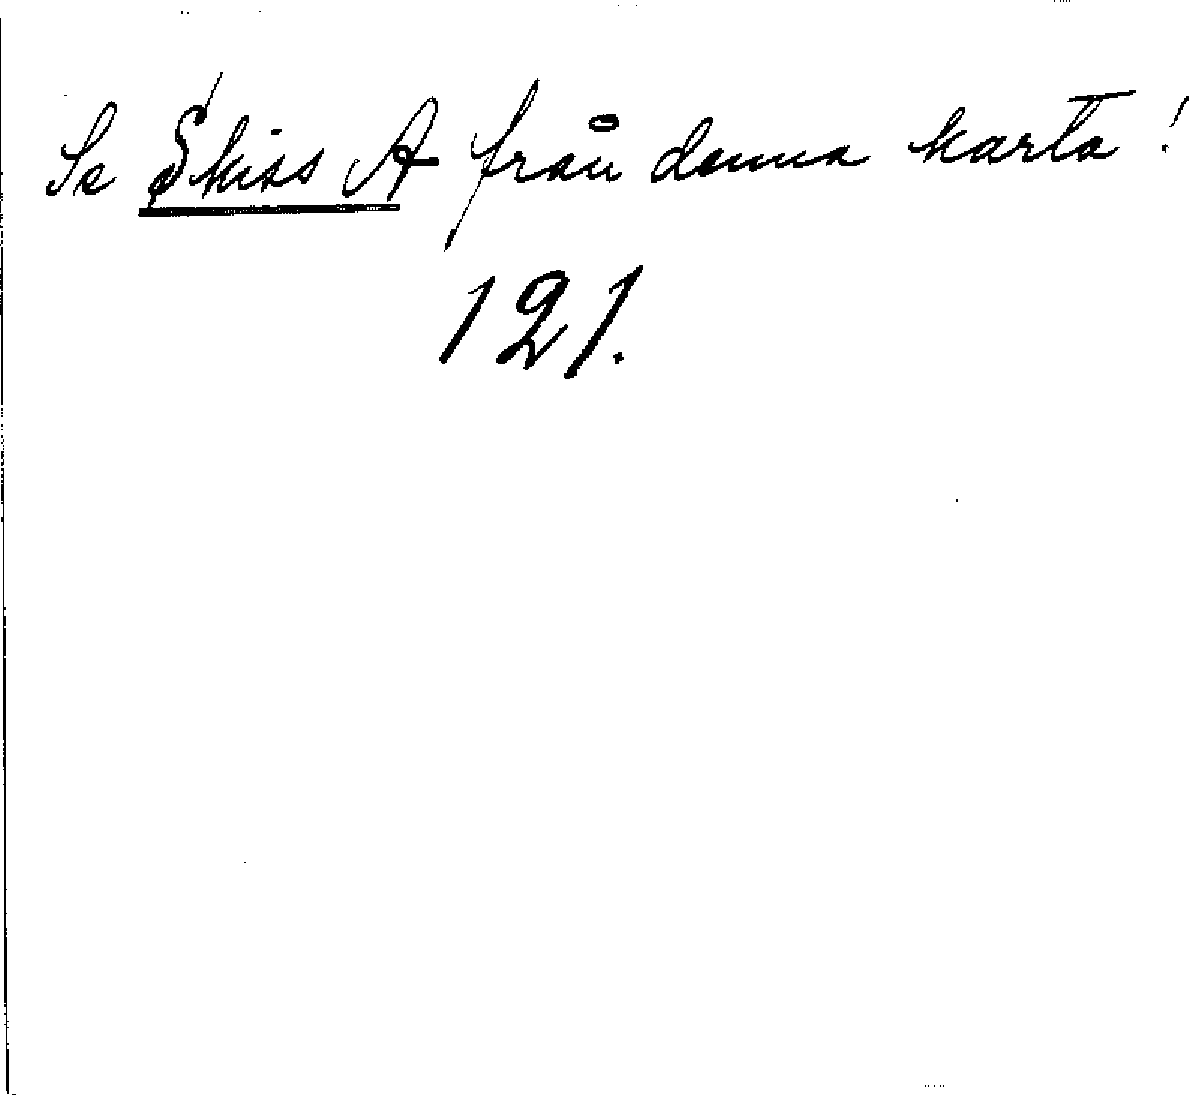 Se Skiss A från denna karta!
121.